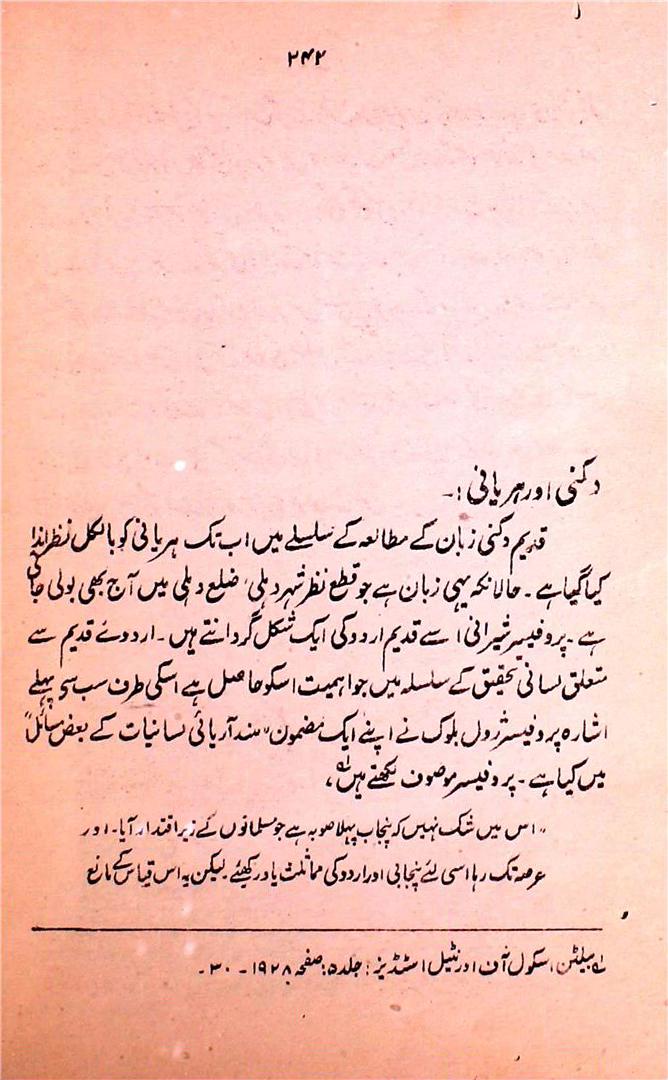 ۲۴۲
دکنی اور ہریانی :۔
قدیم دکنی زبان کے مطالعہ کے سلسلے میں اب تک ہریانی کو بالکل نظر انداز
کیا گیا ہے ۔ حالانکہ یہی زبان ہے جو قطع نظر شہر دہلی، ضلع دہلی میں آج بھی بولی جاتی
ہے ۔ پروفیسر شیرانی اسے قدیم اردو کی ایک شکل گردانتے ہیں ۔ اردوئے قدیم سے
متعلق لسانی تحقیق کے سلسلہ میں جو اہمیت اسکو حاصل ہے اسکی طرف سب سے پہلے
اشارہ پروفیسر ژول بلوک نے اپنے ایک مضمون "ہند آریائی لسانیات کے بعض مسائل"
میں کیا ہے ۔ پروفیسر موصوف لکھتے ہیں ؎۱ ،
"اس میں شک نہیں کہ پنجاب پہلا صوبہ ہے جو مسلمانوں کے زیر اقتدار آیا ۔ اور
عرصہ تک رہا اسی لئے پنجابی اور اردو کی مماثلت یاد رکھیئے لیکن یہ اس قیاس کے مانع
؎۱ بیلٹن، اسکول آف اورنٹیل اسٹڈیز : جلد ۵، صفحہ ۱۹۲۸ ۔ ۳۰ ۔